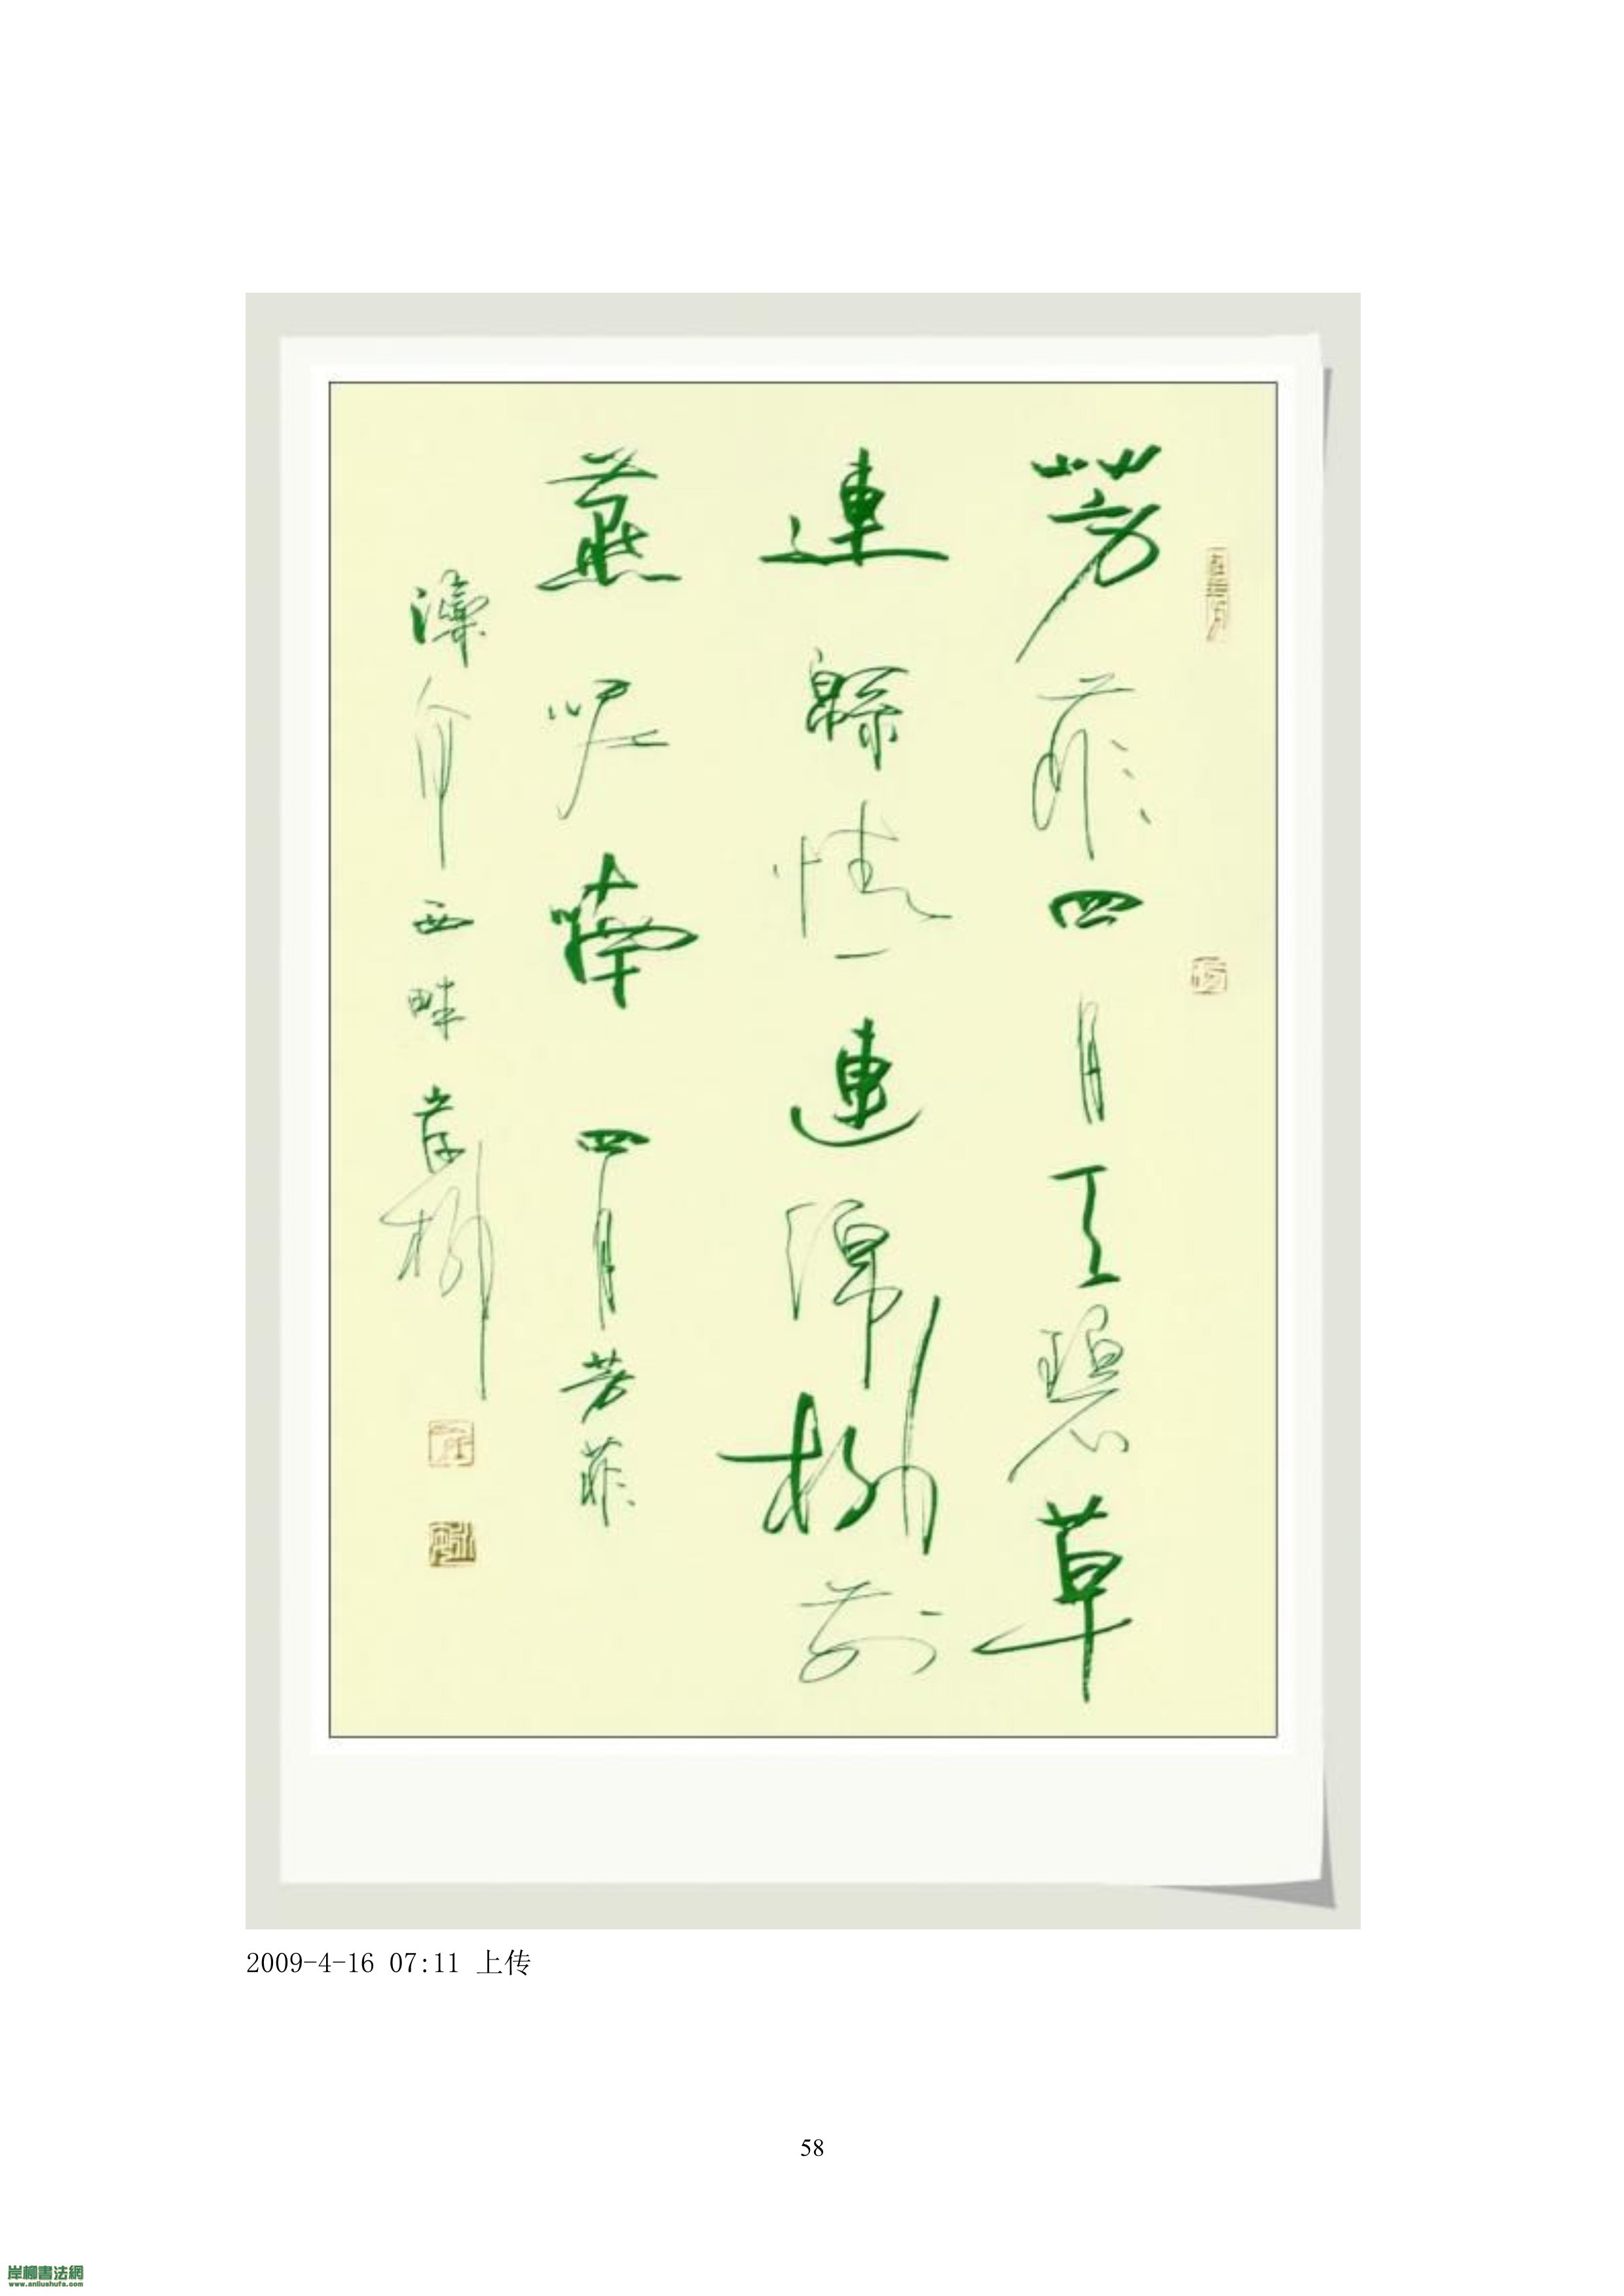 芳菲四月天碧草
連緜情一連綿柳前
燕呢喃 四月芳菲
漳河西畔岸柳
2009-4-16 07:11 上传
58
岸柳書法網
www.anliushufa.com